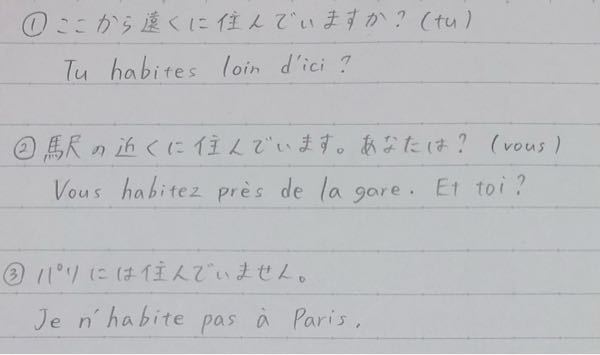 ① ここから遠くに住んでいますか？(tu)
Tu habites loin d'ici ?
② 駅の近くに住んでいます。あなたは？(vous)
Vous habitez près de la gare. Et toi ?
③ パリには住んでいません。
Je n'habite pas à Paris.